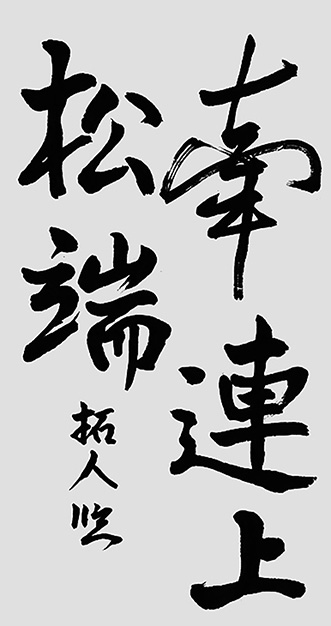 牽連上
松端
拓人臨